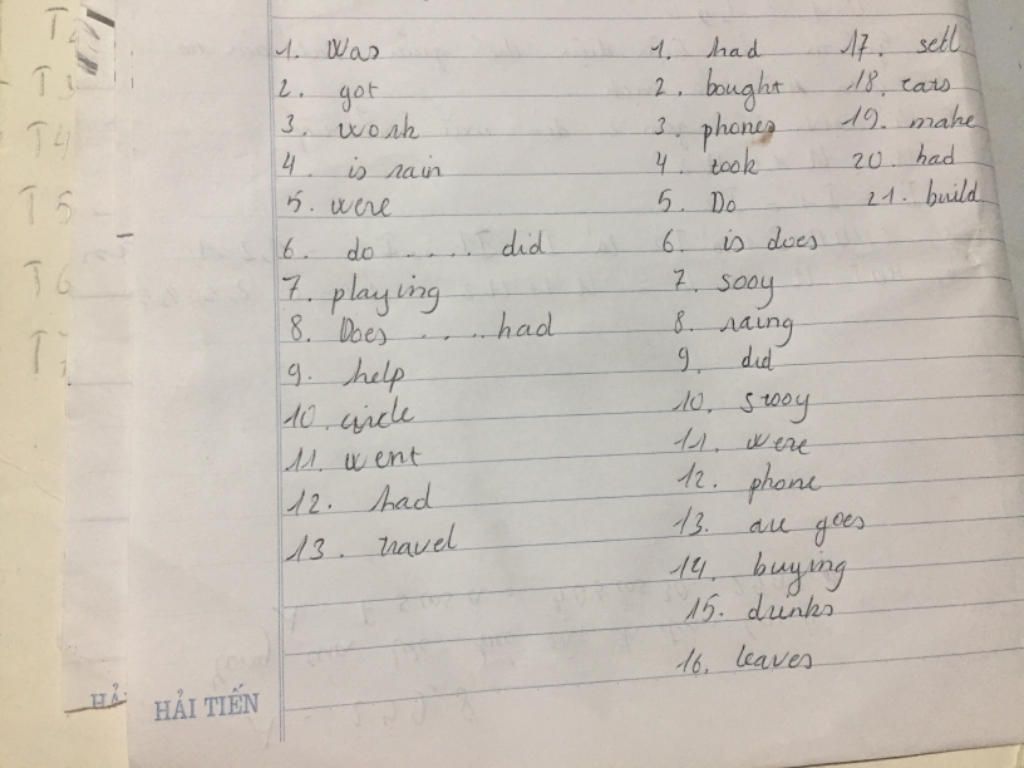 1. was
2. got
3. work
4. is rain
5. were
6. do ..... did
7. playing
8. Does .... had
9. help
10. circle
11. went
12. had
13. travel
1. had
2. bought
3. phones
4. took
5. Do
6. is does
7. sooy
8. raing
9. did
10. srooy
11. were
12. phone
13. are goes
14. buying
15. dunks
16. leaves
17. setl
18. cars
19. make
20. had
21. build
T3
T4
T5
T6
HẢI TIẾN